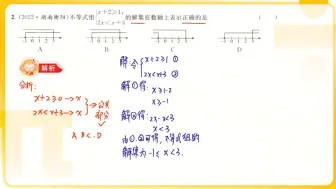 2. (2022·湖南衡阳)不等式组 { x+2≥1, 2x<x+3 的解集在数轴上表示正确的是 ( )
-1 0 1 2 3
-1 0 1 2 3
-1 0 1 2 3
-1 0 1 2 3
A B C D
解析
分析:
x+2≥1→x
2x<x+3→x
公共部分
A. B. C. D
解:令{ x+2≥1 ①
2x<x+3 ②
解①得: x≥1-2
x≥-1
解②得: 2x-x<3
x<3
由①、②可得,不等式组的
解集为-1≤x<3.